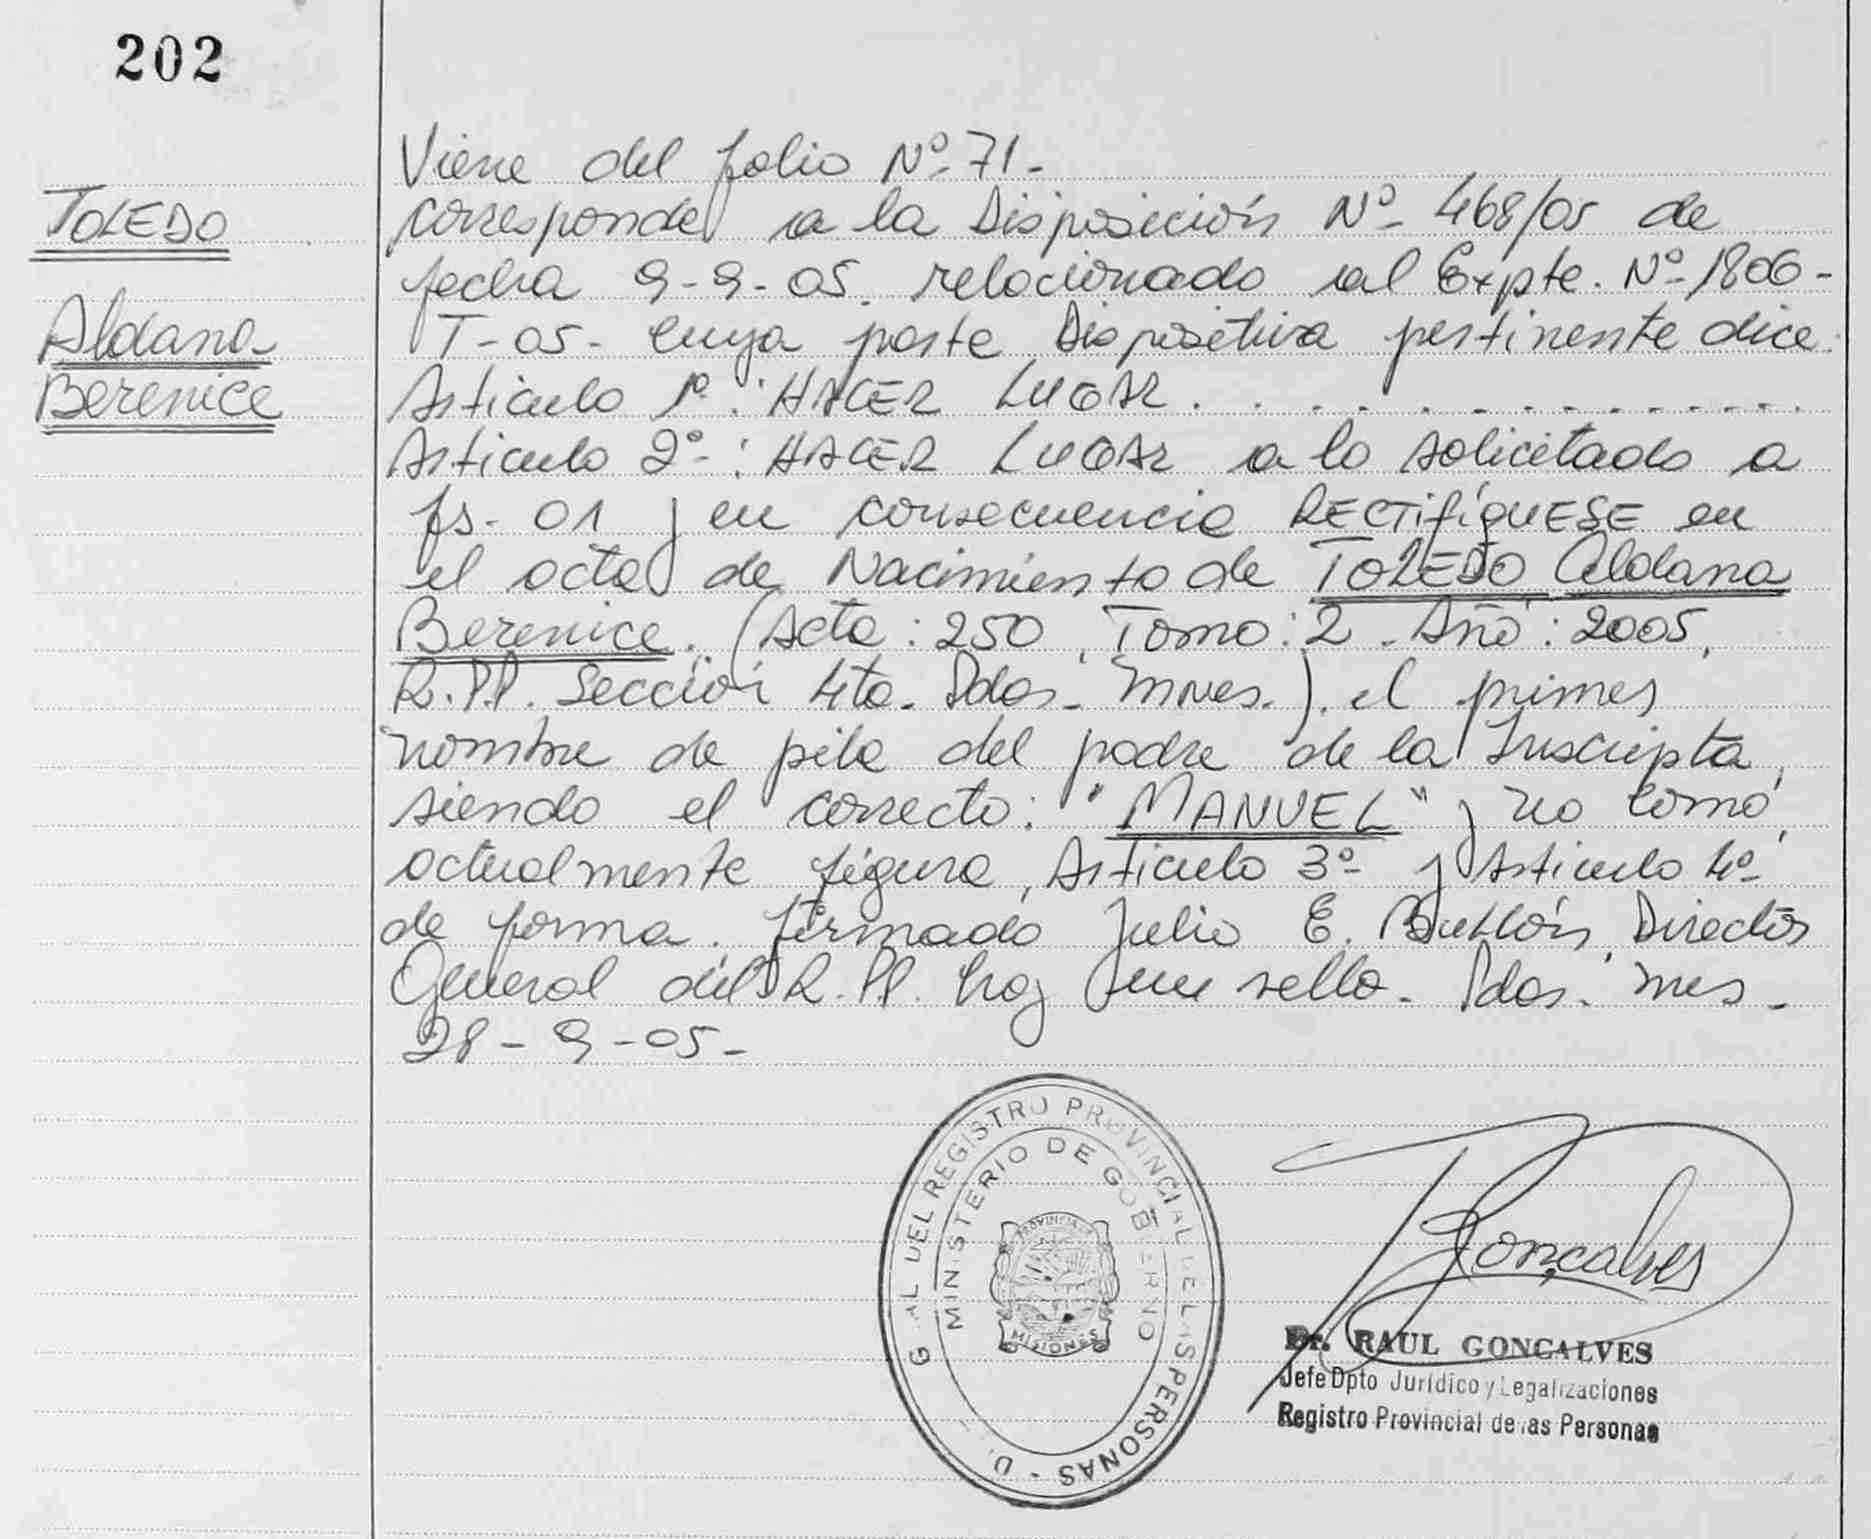 202
TOLEDO
Aldana
Berenice
Viene del folio Nº 71-
corresponde a la Disposición Nº 468/05 de
fecha 9-9-05. relacionado al Expte. Nº 1806-
T-05- cuya parte Dispositiva pertinente dice:
Articulo 1º: HACER LUGAR . . . . . . . . . . . . . .
Articulo 2º: HACER LUGAR a lo solicitado a
fs. 01 y en consecuencia RECTIFÍQUESE en
el acta de Nacimiento de TOLEDO Aldana
Berenice. (Acta: 250, Tomo: 2. Año: 2005,
R.PP. Sección 4ta. Pdas. Mnes.). el primer
nombre de pila del padre de la Inscripta,
siendo el correcto: "MANUEL" y no como
actualmente figura, Articulo 3º y Articulo 4º
de forma. firmado Julio E. Director
General del R.PP. hay un sello. Pdas. mnes.
28-9-05-
G AL DEL REGISTRO PROVINCIAL DE LAS PERSONAS - D.
MINISTERIO DE GOBIERNO
PROVINCIA
MISIONES
Gonçalves
Dr. RAUL GONCALVES
Jefe Dpto Jurídico y Legalizaciones
Registro Provincial de las Personas